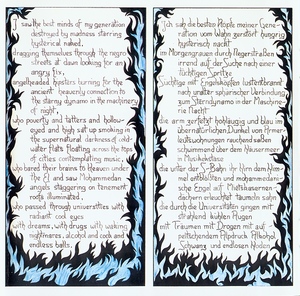 I saw the best minds of my generation
destroyed by madness starving
hysterical naked,
dragging themselves through the negro
streets at dawn looking for an
angry fix,
angelheaded hipsters burning for the
ancient heavenly connection to
the starry dynamo in the machinery
of night,
who poverty and tatters and hollow-
eyed and high sat up smoking in
the supernatural darkness of cold-
water flats floating across the tops
of cities contemplating music,
who bared their brains to heaven under
the El and saw Mohammedan
angels staggering on tenement
roofs illuminated,
who passed through universities with
radiant cool eyes
with dreams, with drugs, with waking
nightmares, alcohol and cock and
endless balls,
Ich sah die besten Köpfe meiner Gene-
ration vom Wahn zerstört hungrig
hysterisch nackt
im Morgengrauen durch Negerstraßen
irrend auf der Suche nach einer
tüchtigen Spritze
Süchtige mit Engelsköpfen lustentbrannt
nach uralter sphärischer Verbindung
zum Sterndynamo in der Maschine-
rie Nacht
die arm zerfetzt hohläugig und blau im
übernatürlichen Dunkel von Armer
leutswohnungen rauchend saßen
schwimmend über dem Häusermeer
in Musikekstase
die unter der S-Bahn ihr Hirn dem Himm-
el entblößten und mohammedani-
sche Engel auf Mietskasernen-
dächern erleuchtet taumeln sahn
die durch die Universitäten gingen mit
strahlend kühlen Augen
mit Träumen mit Drogen mit auf-
peitschendem Alpdruck Alkohol
Schwanz und endlosen Hoden